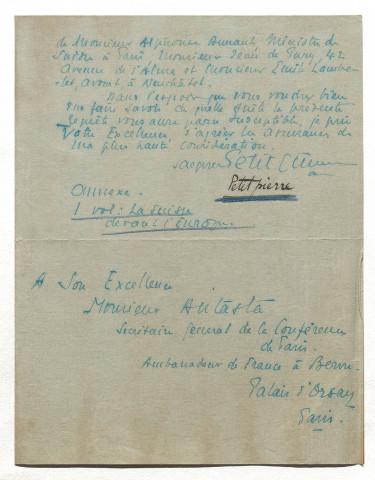 de Monsieur Alphonse Dunant, Ministre de
Suisse à Paris, Monsieur Jean de Pury, 42
Avenue de l'Alma et Monsieur Emile Lambe-
let, avocat à Neuchâtel.
Dans l'espoir que vous voudrez bien
me faire savoir de quelle suite la présente
requête vous aura paru susceptible, je prie
Votre Excellence d'agréer les assurances de
ma plus haute considération.
Jacques Petitpierre
Petitpierre
Annexe.
1 vol: La Suisse
devant l'Europe.
A Son Excellence
Monsieur Dutasta
Secrétaire général de la Conférence
de Paris.
Ambassadeur de France à Berne.
Palais d'Orsay
Paris.